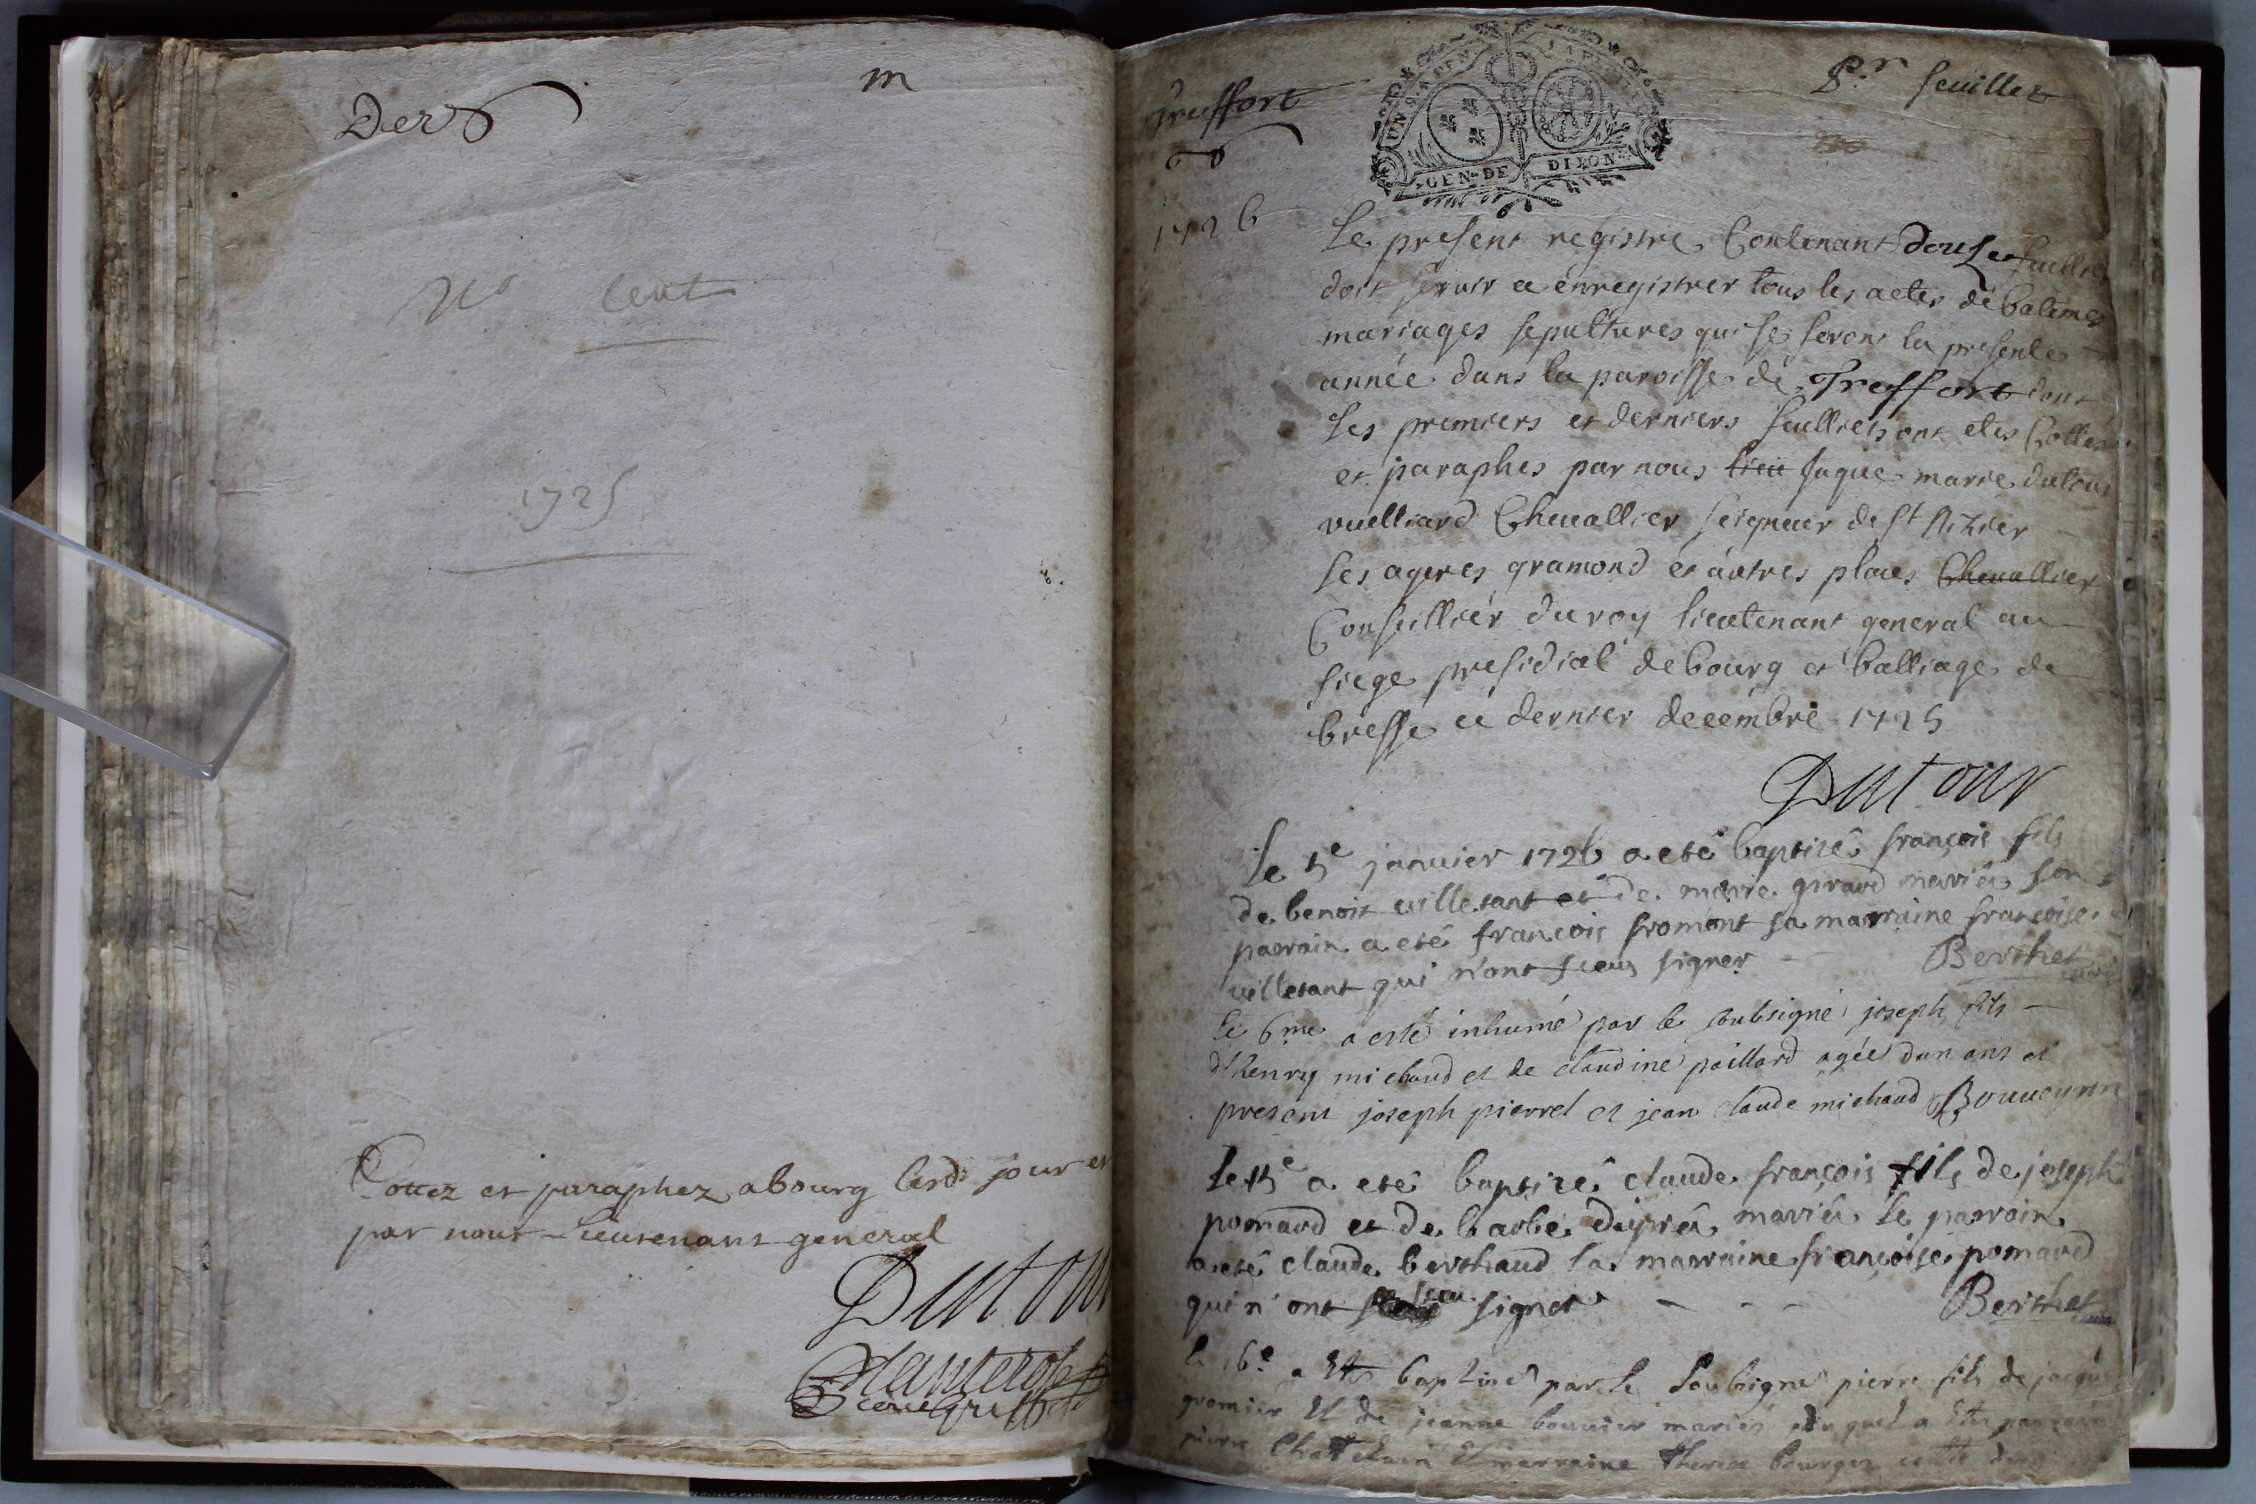 Der
m
N° Cent
1725
Cottez et paraphez a Bourg lesd. jour et
par nous Lieutenant general
Dutour
Treffort
Pr feuillet
GEN. DE DIION
1726
Le present registre Contenant douse feuillet
doit servir a enregistrer tous les actes de batemes
mariages sepultures qui se feront la presente
année dans la paroisse de Treffort dont
les premiers et derniers feulliets ont etes Cottes
et paraphes par nous Jaque marie dutour
vuelliard Chevallier seigneur de St Nizier
les ageres gramond et autres places Chevallier
Conseillier du roy lieutenant general au
siege presidial de bourg et balliage de
bresse ce dernier decembre 1725
Dutour
Le 5e janvier 1726 a eté baptizé françois fils
de benoit villetant et de marie girard mariés son
parrain a eté françois fromont sa marraine françoise
villetant qui n'ont sceu signer Berthet curé
le 6me a esté inhumé par le soubsigné joseph fils
d'henry michaud et de claudine paillard agée d'un ans et
present joseph pierrel et jean claude michaud
a eté baptizé claude françois fils de joseph
pomard et de barbe mariés le parrain
a eté claude berthaud la marraine françoise pomard
qui n'ont sceu signer Berthet curé
le 16e a été baptisé par le soubsigné pierre fils de jaque
gromier et de jeanne bouvier mariés duquel a été parrain
pierre Chatelain et marraine therese